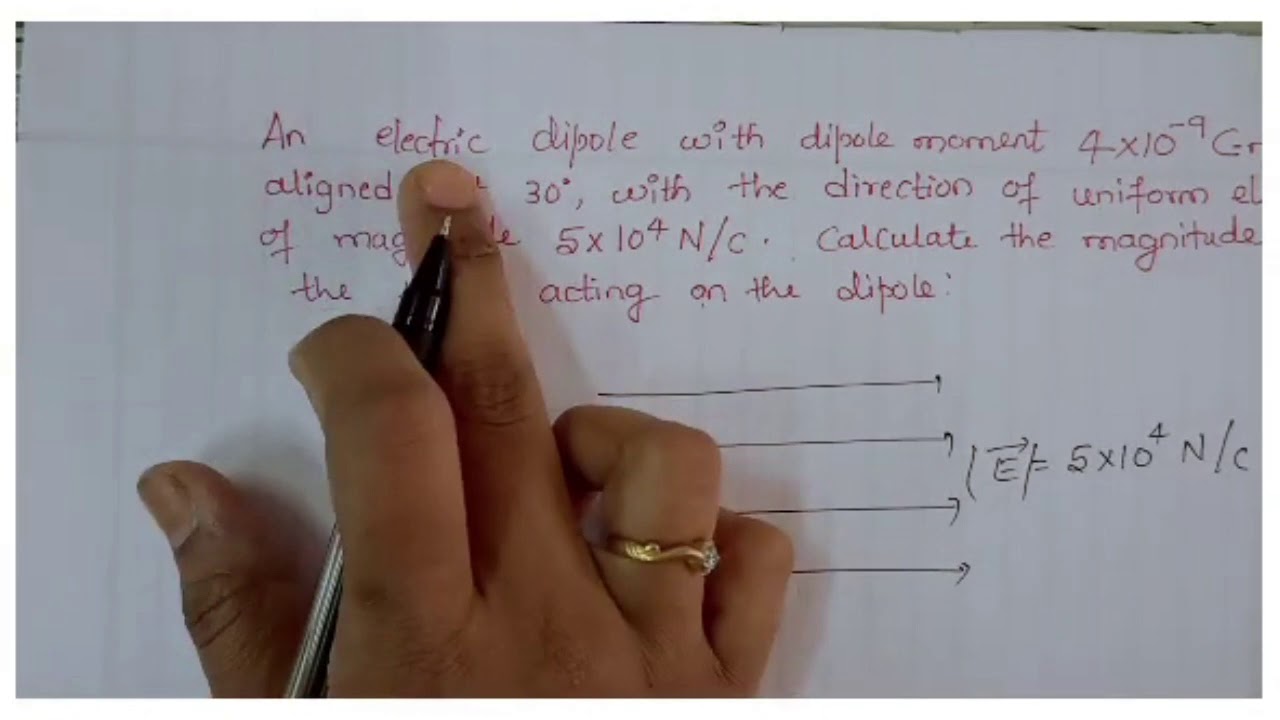 An electric dipole with dipole moment 4×10⁻⁹ C
aligned 30°, with the direction of uniform
of 5×10⁴ N/C. Calculate the magnitude
the acting on the dipole:
|E⃗|= 5×10⁴ N/C